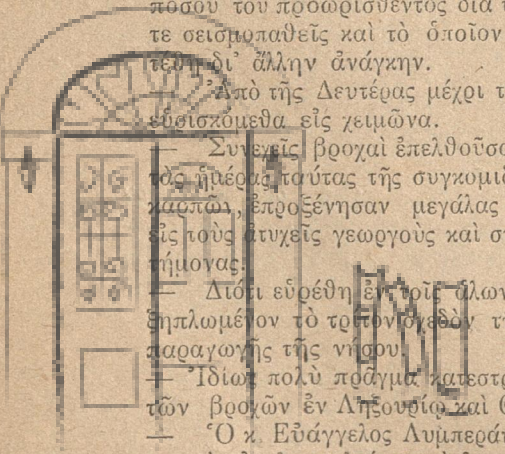 ποσου του προωρισθέντος διά
τε σεισμοπαθεῖς καὶ τὸ ὁποῖον
τέθη δι' ἄλλην ἀνάγκην.
Ἀπὸ τῆς Δευτέρας μέχρι
εὑρισκόμεθα εἰς χειμῶνα.
— Συνεχεῖς βροχαὶ ἐπελθοῦσα
τὰς ἡμέρας ταύτας τῆς συγκομιδ
καρπῶν, ἐπροξένησαν μεγάλας
εἰς τοὺς ἀτυχεῖς γεωργοὺς καὶ
τήμονας.
— Διότι εὑρέθη ἐν τοῖς ἁλων
ξηπλωμένον τὸ τρίτον σχεδὸν
παραγωγῆς τῆς νήσου.
— Ἰδίως πολὺ πρᾶγμα κατεστρ
τῶν βροχῶν ἐν Ληξουρίῳ καὶ
— Ὁ κ. Εὐάγγελος Λυμπεράτ